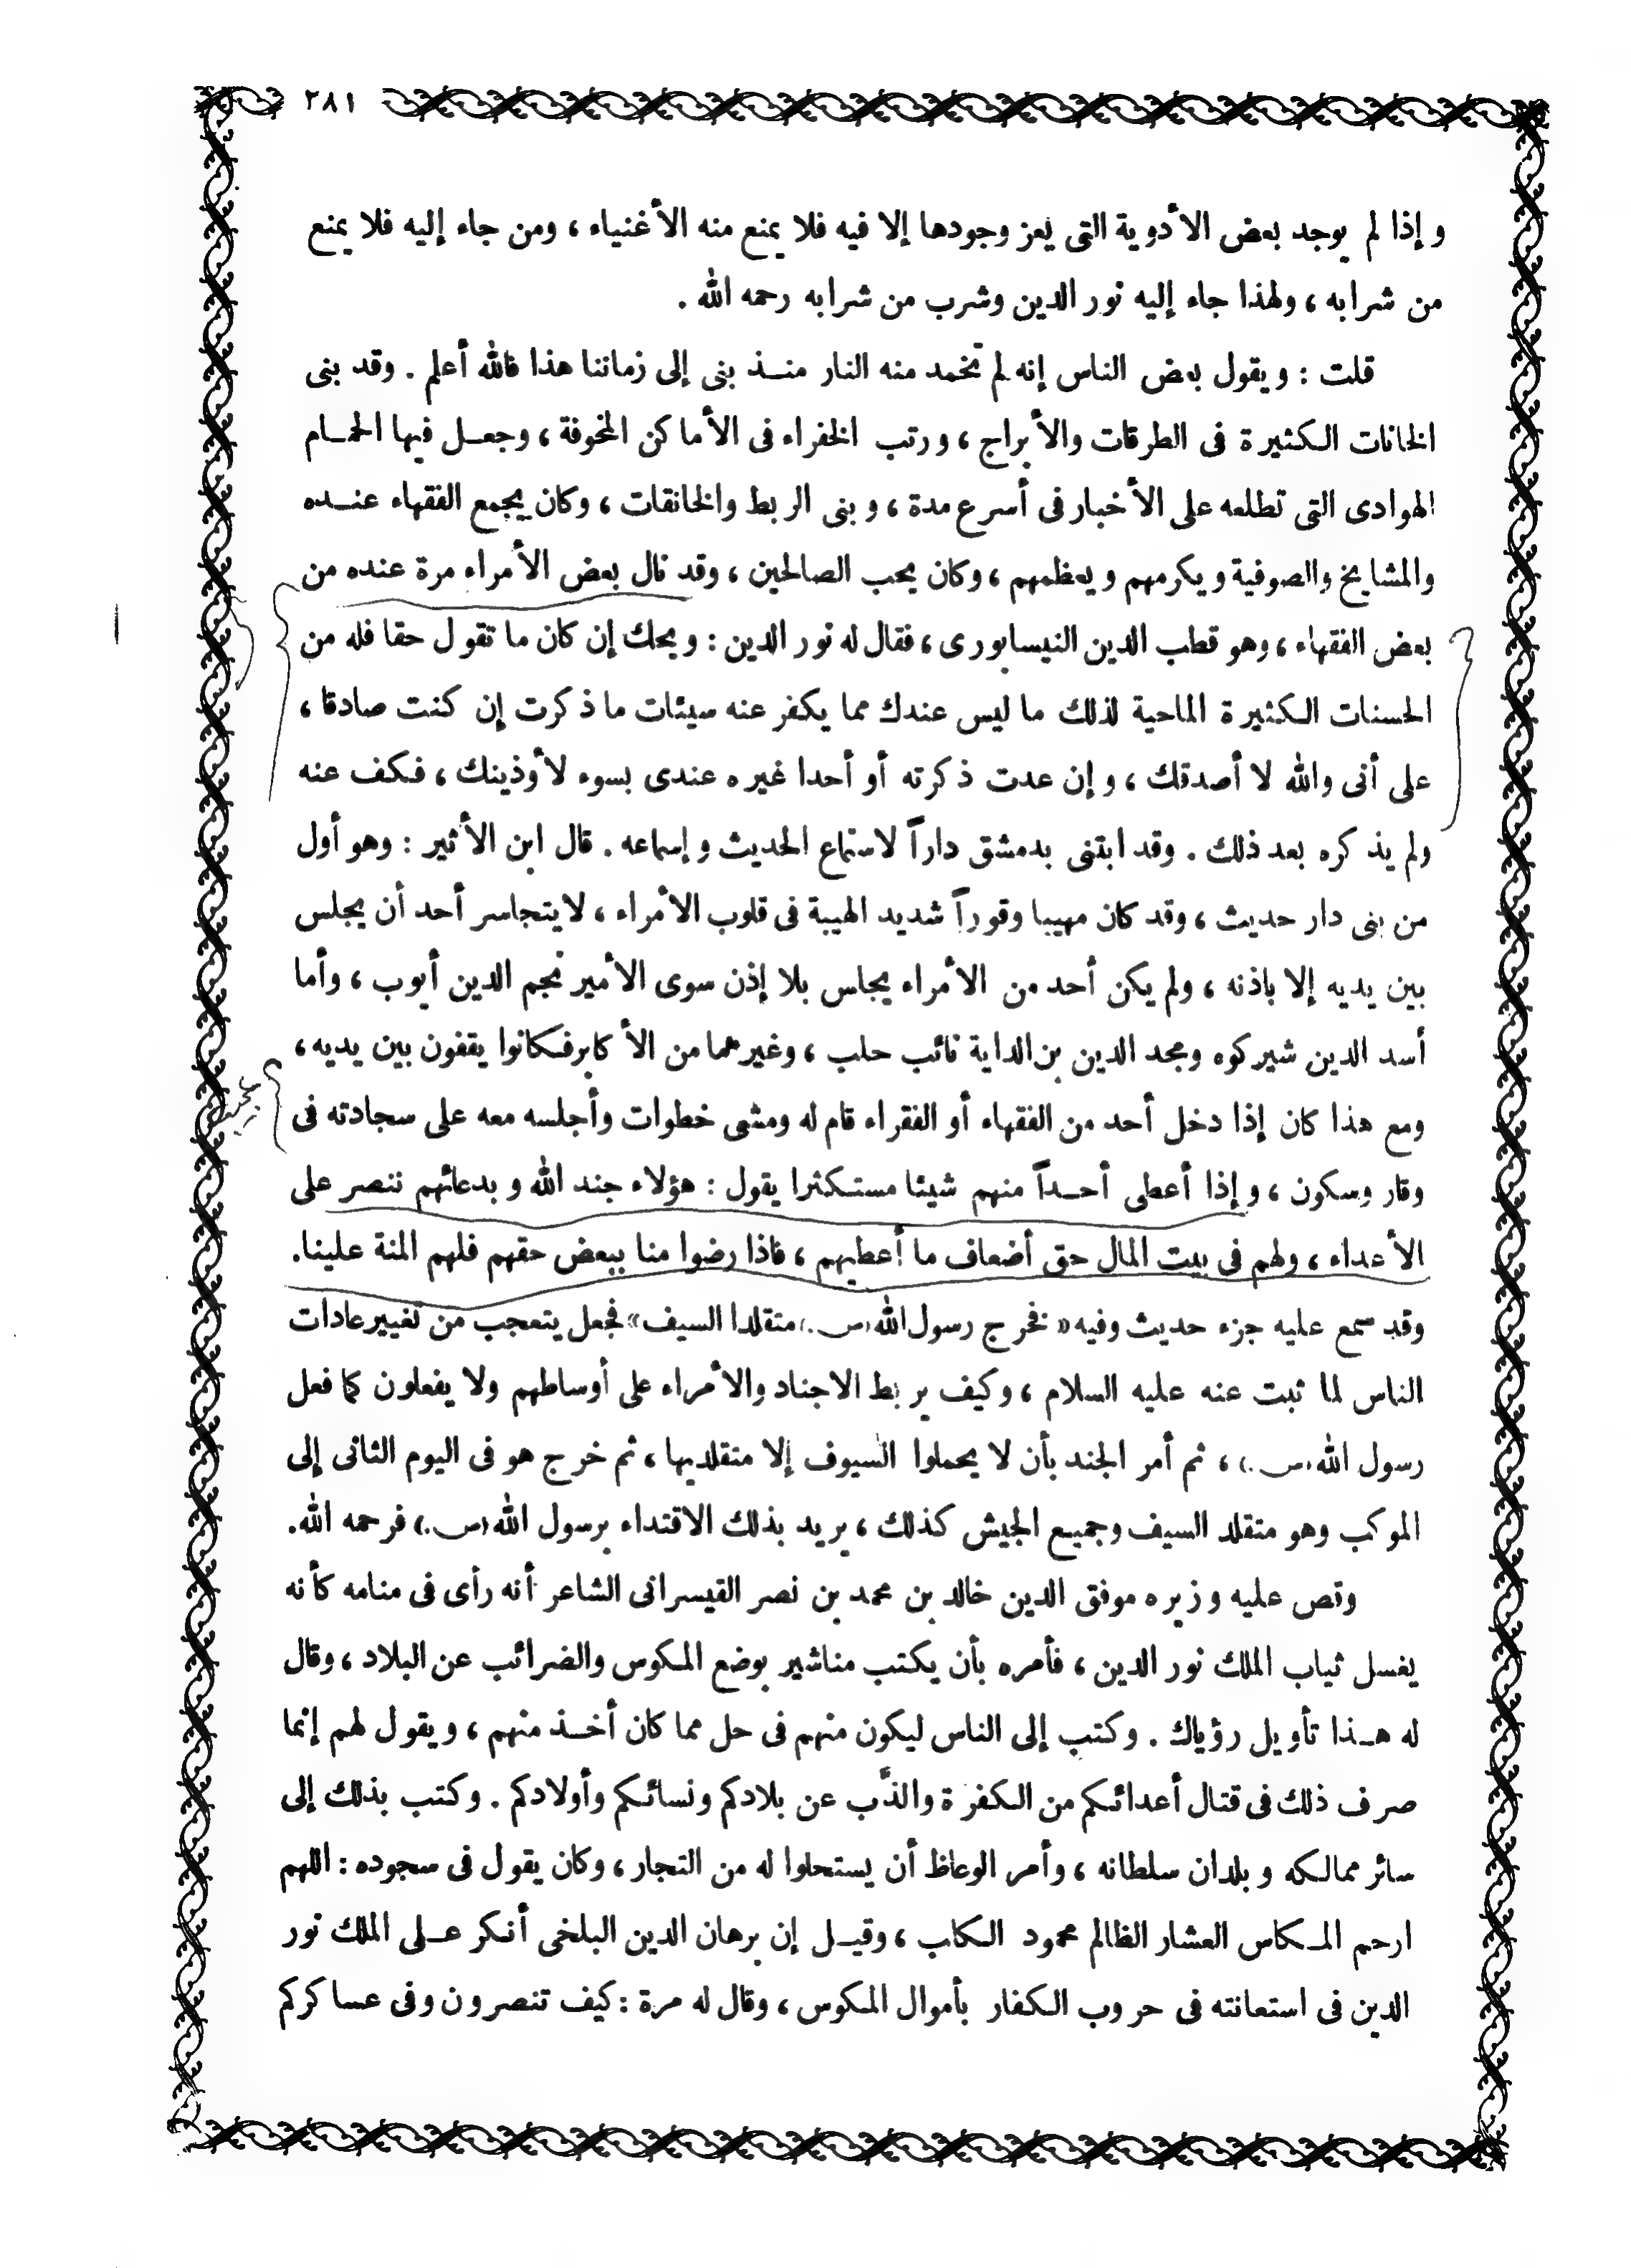 ٢٨١
وإذا لم يوجد بعض الأدوية التى يعز وجودها إلا فيه فلا يمنع منه الأغنياء ، ومن جاء إليه فلا يمنع
من شرابه ، ولهذا جاء إليه نور الدين وشرب من شرابه رحمه الله .
قلت : ويقول بعض الناس إنه لم تخمد منه النار منذ بنى إلى زماننا هذا فالله أعلم . وقد بنى
الخانات الكثيرة فى الطرقات والأبراج ، ورتب الخفراء فى الأماكن المخوفة ، وجعل فيها الحمام
الهوادى التى تطلعه على الأخبار فى أسرع مدة ، وبنى الربط والخانقات ، وكان يجمع الفقهاء عنده
والمشايخ والصوفية ويكرمهم ويعظمهم ، وكان يحب الصالحين ، وقد نال بعض الأمراء مرة عنده من
بعض الفقهاء ، وهو قطب الدين النيسابورى ، فقال له نور الدين : ويحك إن كان ما تقول حقا فله من
الحسنات الكثيرة الماحية لذلك ما ليس عندك مما يكفر عنه سيئات ما ذكرت إن كنت صادقا ،
على أنى والله لا أصدقك ، وإن عدت ذكرته أو أحدا غيره عندى بسوء لأوذينك ، فكف عنه
ولم يذكره بعد ذلك . وقد ابتنى بدمشق داراً لاستماع الحديث وإسماعه . قال ابن الأثير : وهو أول
من بنى دار حديث ، وقد كان مهيبا وقوراً شديد الهيبة فى قلوب الأمراء ، لا يتجاسر أحد أن يجلس
بين يديه إلا باذنه ، ولم يكن أحد من الأمراء يجلس بلا إذن سوى الأمير نجم الدين أيوب ، وأما
أسد الدين شيركوه ومجد الدين بن الداية نائب حلب ، وغيرهما من الأكابر فكانوا يقفون بين يديه ،
ومع هذا كان إذا دخل أحد من الفقهاء أو الفقراء قام له ومشى خطوات وأجلسه معه على سجادته فى
وقار وسكون ، وإذا أعطى أحداً منهم شيئا مستكثرا يقول : هؤلاء جند الله وبدعائهم ننصر على
الأعداء ، ولهم فى بيت المال حق أضعاف ما أعطيهم ، فاذا رضوا منا ببعض حقهم فلهم المنة علينا .
وقد سمع عليه جزء حديث وفيه « فخرج رسول الله (ص.) متقلدا السيف » فجعل يتعجب من تغيير عادات
الناس لما ثبت عنه عليه السلام ، وكيف يربط الاجناد والأمراء على أوساطهم ولا يفعلون كما فعل
رسول الله (ص.) ، ثم أمر الجند بأن لا يحملوا السيوف إلا متقلديها ، ثم خرج هو فى اليوم الثانى إلى
الموكب وهو متقلد السيف وجميع الجيش كذلك ، يريد بذلك الاقتداء برسول الله (ص.) فرحمه الله .
وقص عليه وزيره موفق الدين خالد بن محمد بن نصر القيسرانى الشاعر أنه رأى فى منامه كأنه
يغسل ثياب الملك نور الدين ، فأمره بأن يكتب مناشير بوضع المكوس والضرائب عن البلاد ، وقال
له هذا تأويل رؤياك . وكتب إلى الناس ليكون منهم فى حل مما كان أخذ منهم ، ويقول لهم إنما
صرف ذلك فى قتال أعدائكم من الكفرة والذَّب عن بلادكم ونسائكم وأولادكم . وكتب بذلك إلى
سائر ممالكه وبلدان سلطانه ، وأمر الوعاظ أن يستحلوا له من التجار ، وكان يقول فى سجوده : اللهم
ارحم المكاس العشار الظالم محمود الكلب ، وقيل إن برهان الدين البلخى أنكر على الملك نور
الدين فى استعانته فى حروب الكفار بأموال المكوس ، وقال له مرة : كيف تنصرون وفى عساكركم